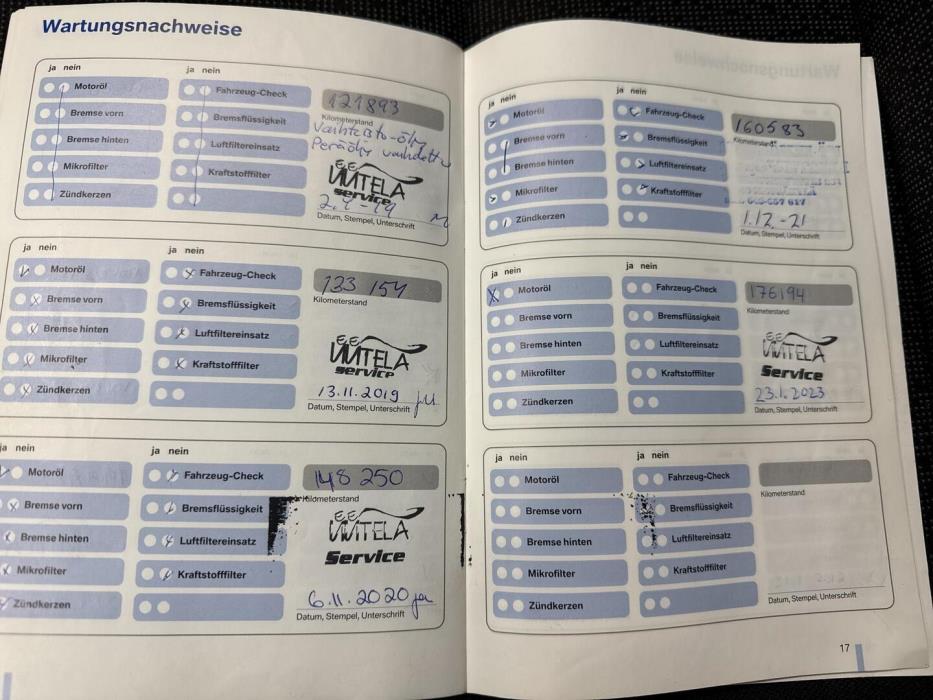 Wartungsnachweise
ja nein
ja nein
Motoröl
Fahrzeug-Check
121893
Bremse vorn
Bremsflüssigkeit
Kilometerstand
Bremse hinten
Luftfiltereinsatz
Mikrofilter
Kraftstofffilter
VIITELA
service
Zündkerzen
Datum, Stempel, Unterschrift
ja nein
ja nein
Motoröl
Fahrzeug-Check
133 154
Bremse vorn
Bremsflüssigkeit
Kilometerstand
Bremse hinten
Luftfiltereinsatz
Mikrofilter
Kraftstofffilter
VIITELA
service
Zündkerzen
13.11.2019
Datum, Stempel, Unterschrift
ja nein
ja nein
Motoröl
Fahrzeug-Check
148 250
Bremse vorn
Bremsflüssigkeit
Kilometerstand
Bremse hinten
Luftfiltereinsatz
VIITELA
Service
Mikrofilter
Kraftstofffilter
Zündkerzen
6.11.2020
Datum, Stempel, Unterschrift
ja nein
ja nein
Motoröl
Fahrzeug-Check
160583
Bremse vorn
Bremsflüssigkeit
Kilometerstand
Bremse hinten
Luftfiltereinsatz
Mikrofilter
Kraftstofffilter
Zündkerzen
1.12.-21
Datum, Stempel, Unterschrift
ja nein
ja nein
Motoröl
Fahrzeug-Check
176194
Bremse vorn
Bremsflüssigkeit
Kilometerstand
Bremse hinten
Luftfiltereinsatz
VIITELA
Service
Mikrofilter
Kraftstofffilter
23.1.2023
Zündkerzen
Datum, Stempel, Unterschrift
ja nein
ja nein
Motoröl
Fahrzeug-Check
Bremse vorn
Bremsflüssigkeit
Kilometerstand
Bremse hinten
Luftfiltereinsatz
Mikrofilter
Kraftstofffilter
Zündkerzen
Datum, Stempel, Unterschrift
17